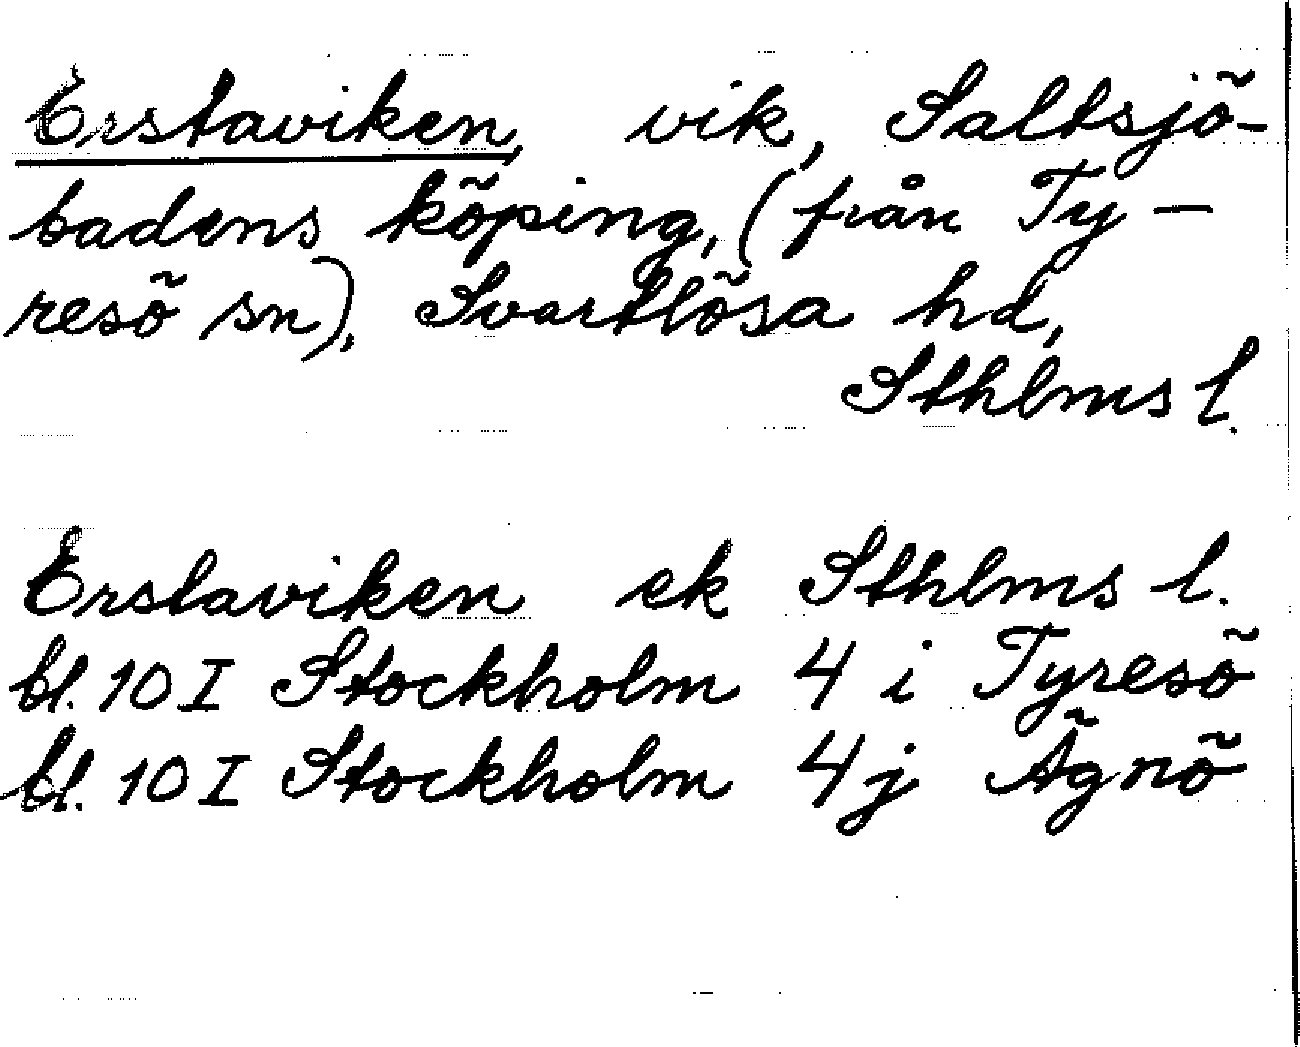 Erstaviken, vik, Saltsjö-
badens köping, (från Ty-
resö sn), Svartlösa hd,
Sthlms l.
Erstaviken ek Sthlms l.
bl. 10 I Stockholm 4 i Tyresö
bl. 10 I Stockholm 4j Ägnö